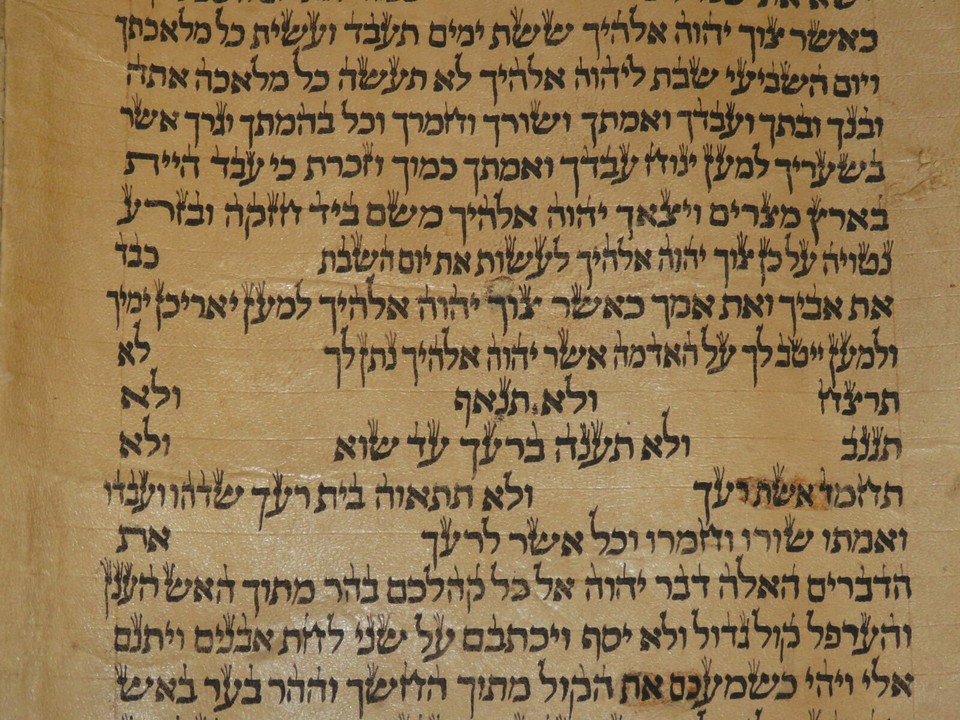 כאשר צוך יהוה אלהיך ששת ימים תעבד ועשית כל מלאכתך
ויום השביעי שבת ליהוה אלהיך לא תעשה כל מלאכה אתה
ובנך ובתך ועבדך ואמתך ושורך וחמרך וכל בהמתך וגרך אשר
בשעריך למען ינוח עבדך ואמתך כמוך וזכרת כי עבד היית
בארץ מצרים ויצאך יהוה אלהיך משם ביד חזקה ובזרע
נטויה על כן צוך יהוה אלהיך לעשות את יום השבת כבד
את אביך ואת אמך כאשר צוך יהוה אלהיך למען יאריכן ימיך
ולמען ייטב לך על האדמה אשר יהוה אלהיך נתן לך לא
תרצח ולא תנאף ולא
תגנב ולא תענה ברעך עד שוא ולא
תחמד אשת רעך ולא תתאוה בית רעך שדהו ועבדו
ואמתו שורו וחמרו וכל אשר לרעך את
הדברים האלה דבר יהוה אל כל קהלכם בהר מתוך האש הענן
והערפל קול גדול ולא יסף ויכתבם על שני לחת אבנים ויתנם
אלי ויהי כשמעכם את הקול מתוך החשך וההר בער באש